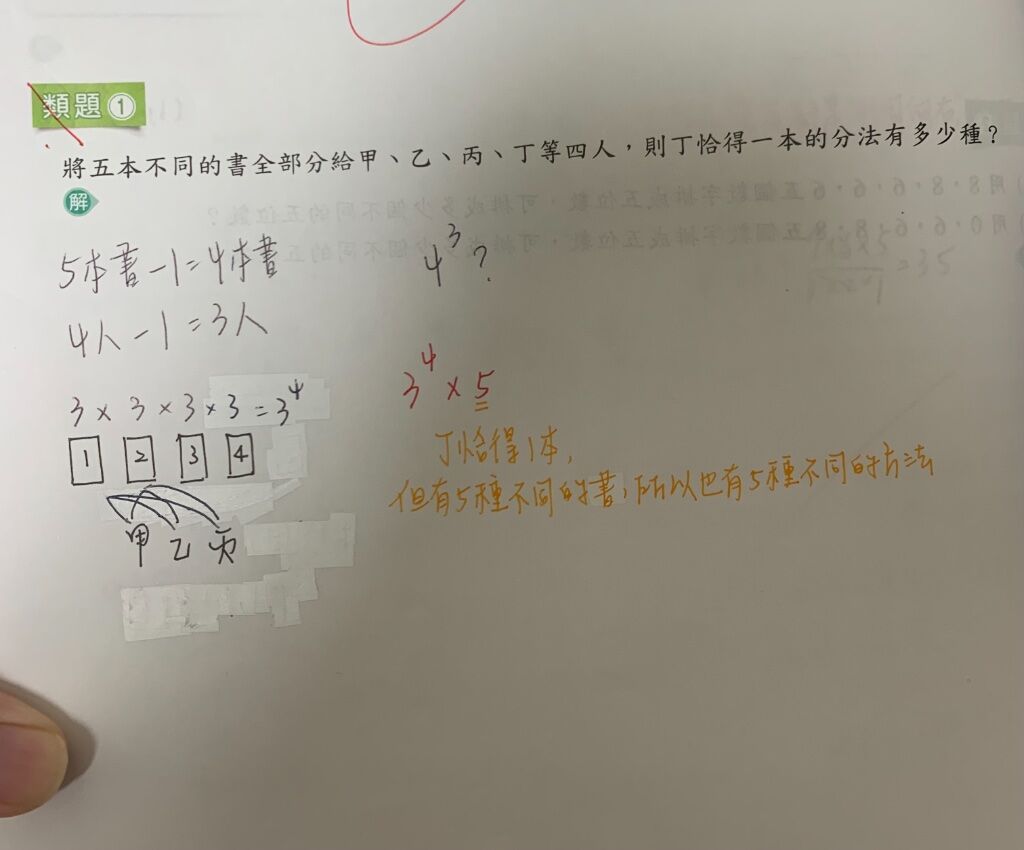 類題①
將五本不同的書全部分給甲、乙、丙、丁等四人，則丁恰得一本的分法有多少種？
解
5本書-1=4本書
4人-1=3人
3×3×3×3=3⁴
1 2 3 4
甲 乙 丙
4³?
3⁴×5
丁恰得1本,
但有5種不同的書,所以也有5種不同的方法